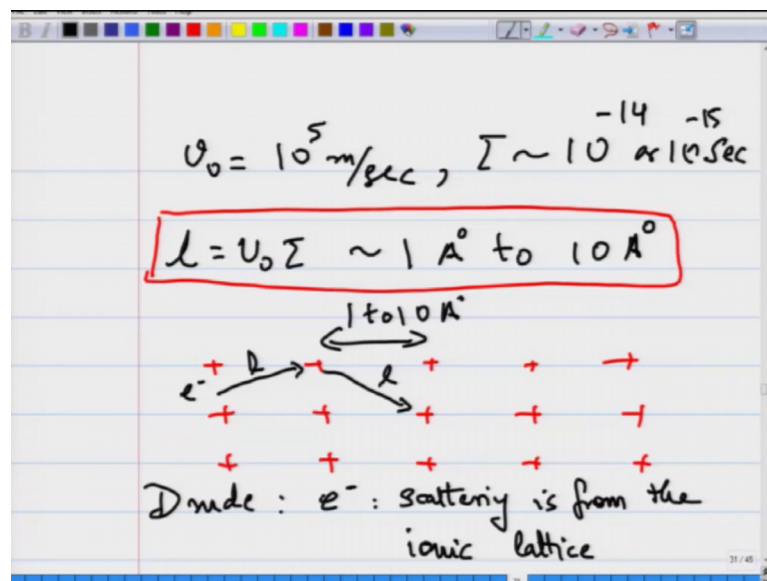 v₀ = 10⁵ m/sec, τ ~ 10⁻¹⁴ or 10⁻¹⁵ Sec
l = v₀ τ ~ 1 A° to 10 A°
1 to 10 A°
+ + + + +
e⁻ l l
+ + + + +
+ + + + +
Drude : e⁻ : scattering is from the
ionic lattice
31 / 45